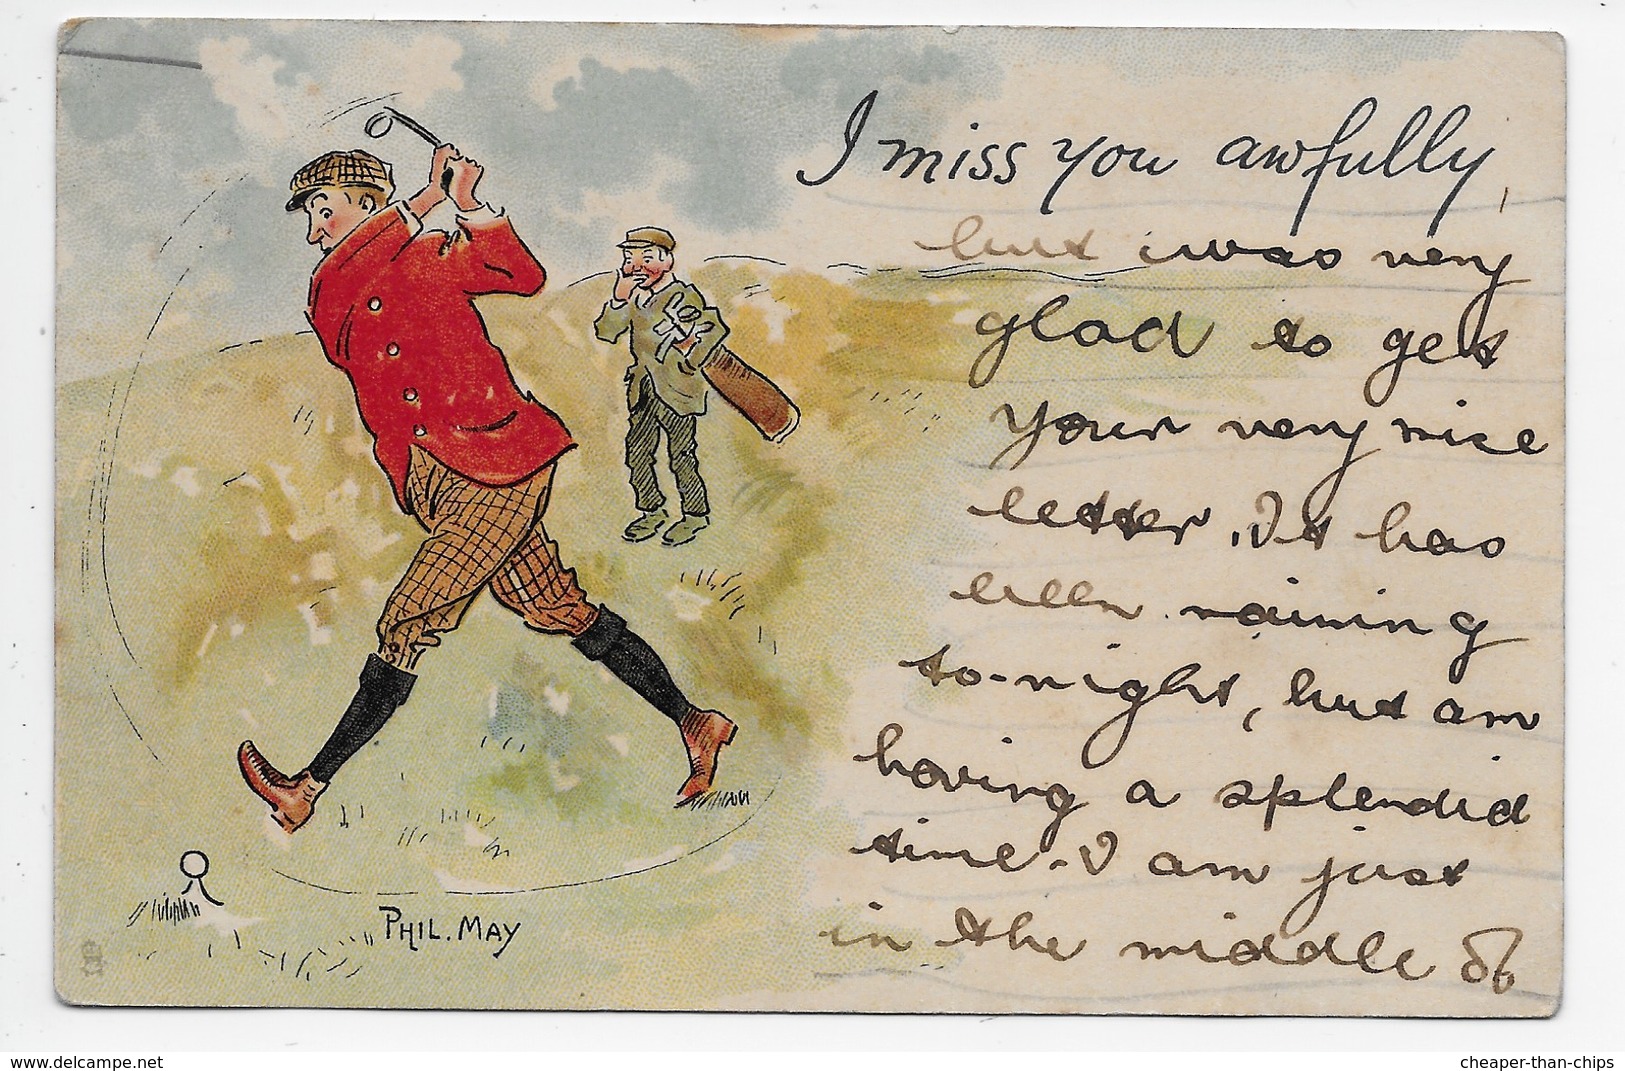 I miss you awfully,
but i was very
glad to get
your very nice
letter. It has
been raining
to-night, but am
having a splendid
time. I am just
in the middle of
PHIL. MAY
cheaper-than-chips